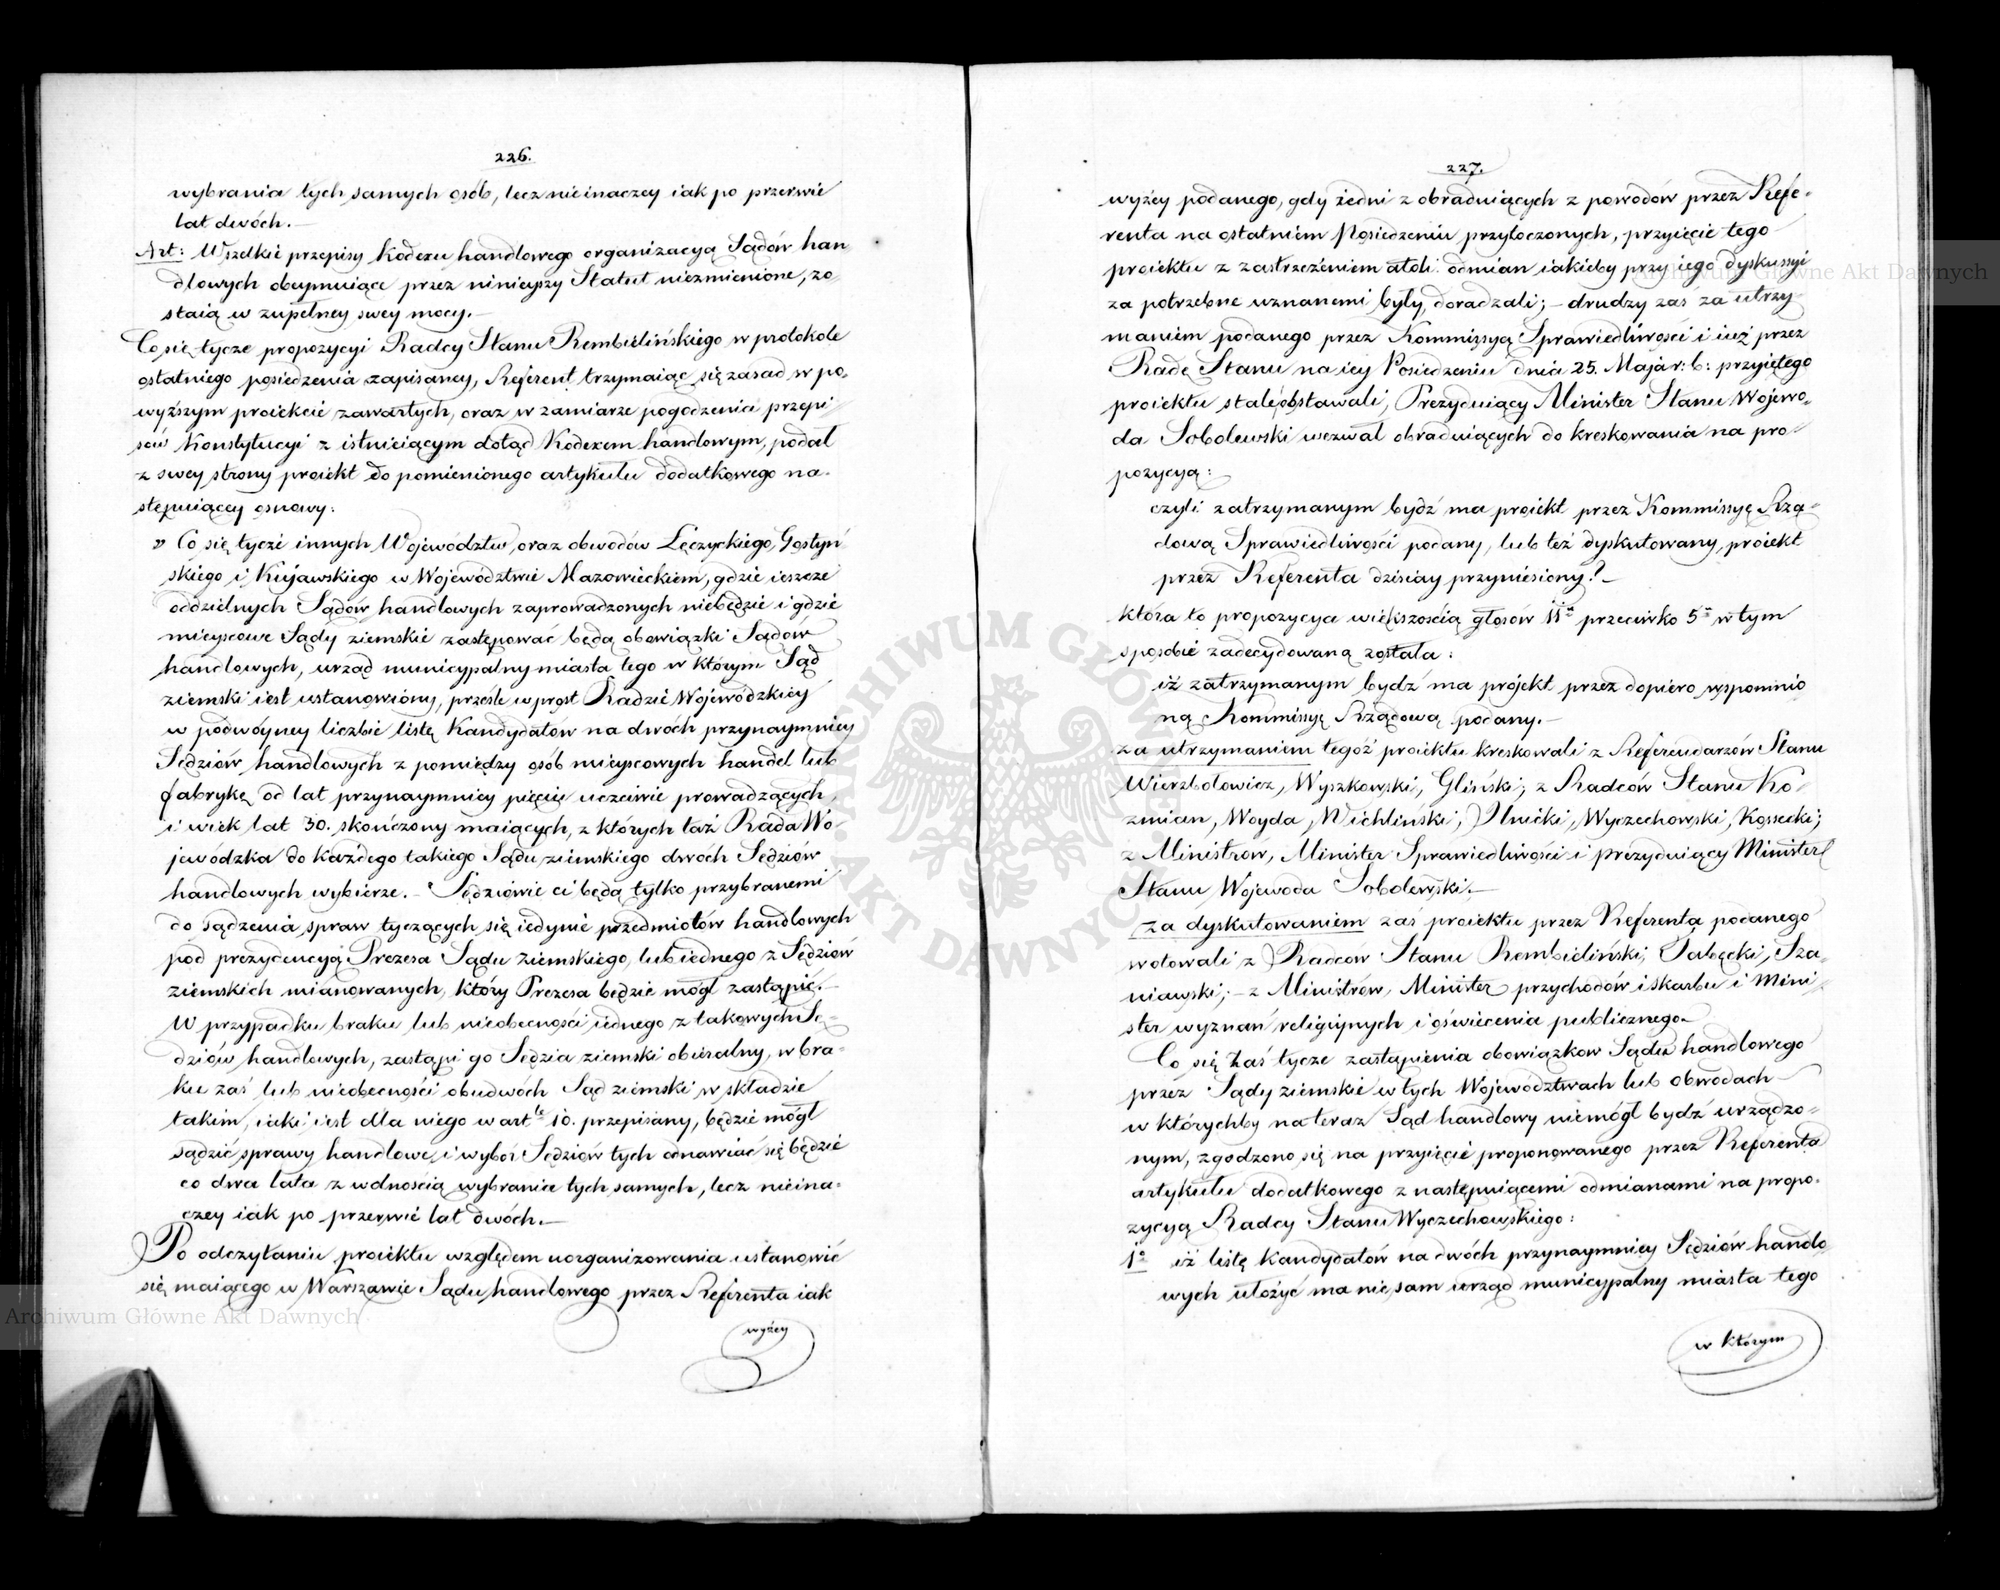 226.
wybrania tych samych osób, lecz nieinaczey iak po przerwie
lat dwóch.—
Art: Wszelkie przepisy Kodexu handlowego organizacyą Sądów han
dlowych obeymuiące przez ninieyszy Statut niezmienione, zo-
staią w zupełney swey mocy.—
Co się tycze propozycyi Radcy Stanu Rembielińskiego w protokole
ostatniego posiedzenia zapisaney, Referent trzymaiąc się zasad w po-
wyższym proiekcie zawartych, oraz w zamiarze pogodzenia przepi-
sów Konstytucyi z istnieiącym dotąd Kodexem handlowym, podał
z swey strony proiekt do pomienionego artykułu dodatkowego na-
stępuiącey osnowy:
" Co się tycze innych Województw, oraz obwodów Łęczyckiego, Gostyń-
skiego i Kujawskiego w Województwie Mazowieckiem, gdzie ieszcze
oddzielnych Sądów handlowych zaprowadzonych niebędzie i gdzie
mieyscowe Sądy ziemskie zastępować będą obowiązki Sądów
handlowych, urząd municypalny miasta tego w którym Sąd
ziemski iest ustanowiony, prześle wprost Radzie Wojewódzkiey
w podwóyney liczbie listę Kandydatów na dwóch przynaymniey
Sędziów handlowych z pomiędzy osób mieyscowych handel lub
fabrykę od lat przynaymniey pięciu uczciwie prowadzących,
i wiek lat 30. skończony maiących, z których taż Rada Wo-
jewódzka do każdego takiego Sądu ziemskiego dwóch Sędziów
handlowych wybierze.— Sędziowie ci będą tylko przybranemi
do sądzenia spraw tyczących się iedynie przedmiotów handlowych
pod prezydencyą Prezesa Sądu ziemskiego, lub iednego z Sędziów
ziemskich mianowanych, który Prezesa będzie mógł zastąpić.—
W przypadku braku lub nieobecności iednego z takowych Sę-
dziów handlowych, zastąpi go Sędzia ziemski obieralny, w bra-
ku zaś lub nieobecności obudwóch Sąd ziemski w składzie
takim, iaki iest dla niego w art<sup>le</sup> 10. przepisany, będzie mógł
sądzić sprawy handlowe, i wybór Sędziów tych odnawiać się będzie
co dwa lata z wolnością wybrania tych samych, lecz nieina-
czey iak po przerwie lat dwóch.—
Po odczytaniu proiektu względem uorganizowania ustanowić
się maiącego w Warszawie Sądu handlowego przez Referenta iak
wyżey
227.
wyżey podanego, gdy iedni z obraduiących z powodów przez Refe-
renta na ostatniem Posiedzeniu przytoczonych, przyięcie tego
proiektu z zastrzeżeniem atoli odmian iakieby przy iego dyskussyi
za potrzebne uznanemi były, doradzali;— drudzy zaś za utrzy-
maniem podanego przez Kommissyą Sprawiedliwości i iuż przez
Radę Stanu na iey Posiedzeniu dnia 25. Maja r: b: przyiętego
proiektu stale obstawali, Prezyduiący Minister Stanu Wojewo-
da Sobolewski wezwał obraduiących do kreskowania na pro-
pozycyą:
czyli zatrzymanym bydź ma proiekt przez Kommissyę Rzą-
dową Sprawiedliwości podany, lub też dyskutowany proiekt
przez Referenta dzisiay przyniesiony?—
która to propozycya większością głosów 11<sup>tu</sup> przeciwko 5<sup>u</sup> w tym
sposobie zadecydowaną została:
iż zatrzymanym bydź ma projekt przez dopiero wspomnio
ną Kommissyę Rządową podany.—
za utrzymaniem tegóż proiektu kreskowali z Referendarzów Stanu
Wierzbołowicz, Wyszkowski, Gliński; z Radców Stanu Ko-
zmian, Woyda, Michliński, Ilnicki, Wyczechowski, Kossecki;
z Ministrów, Minister Sprawiedliwości i prezyduiący Minister
Stanu Wojewoda Sobolewski.—
za dyskutowaniem zaś proiektu przez Referenta podanego
wotowali z Radców Stanu Rembieliński, Sza-
niawski;— z Ministrów, Minister przychodów i skarbu i Mini-
ster wyznań religiynych i oświecenia publicznego.
Co się zaś tycze zastąpienia obowiązkow Sądu handlowego
przez Sądy ziemskie w tych Województwach lub obwodach
w którychby na teraz Sąd handlowy niemógł bydź urządzo-
nym, zgodzono się na przyięcie proponowanego przez Referenta
artykułu dodatkowego z następuiącemi odmianami na propo-
zycyą Radcy Stanu Wyczechowskiego:
1<sup>o</sup> iż listę Kandydatów na dwóch przynaymniey Sędziów handlo
wych ułożyć ma nie sam urząd municypalny miasta tego
w którym
Archiwum Główne Akt Dawnych
Archiwum Główne Akt Dawnych
ARCHIWUM GŁÓWNE AKT DAWNYCH